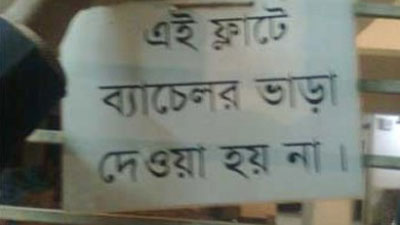 এই ফ্লাটে
ব্যাচেলর ভাড়া
দেওয়া হয় না।